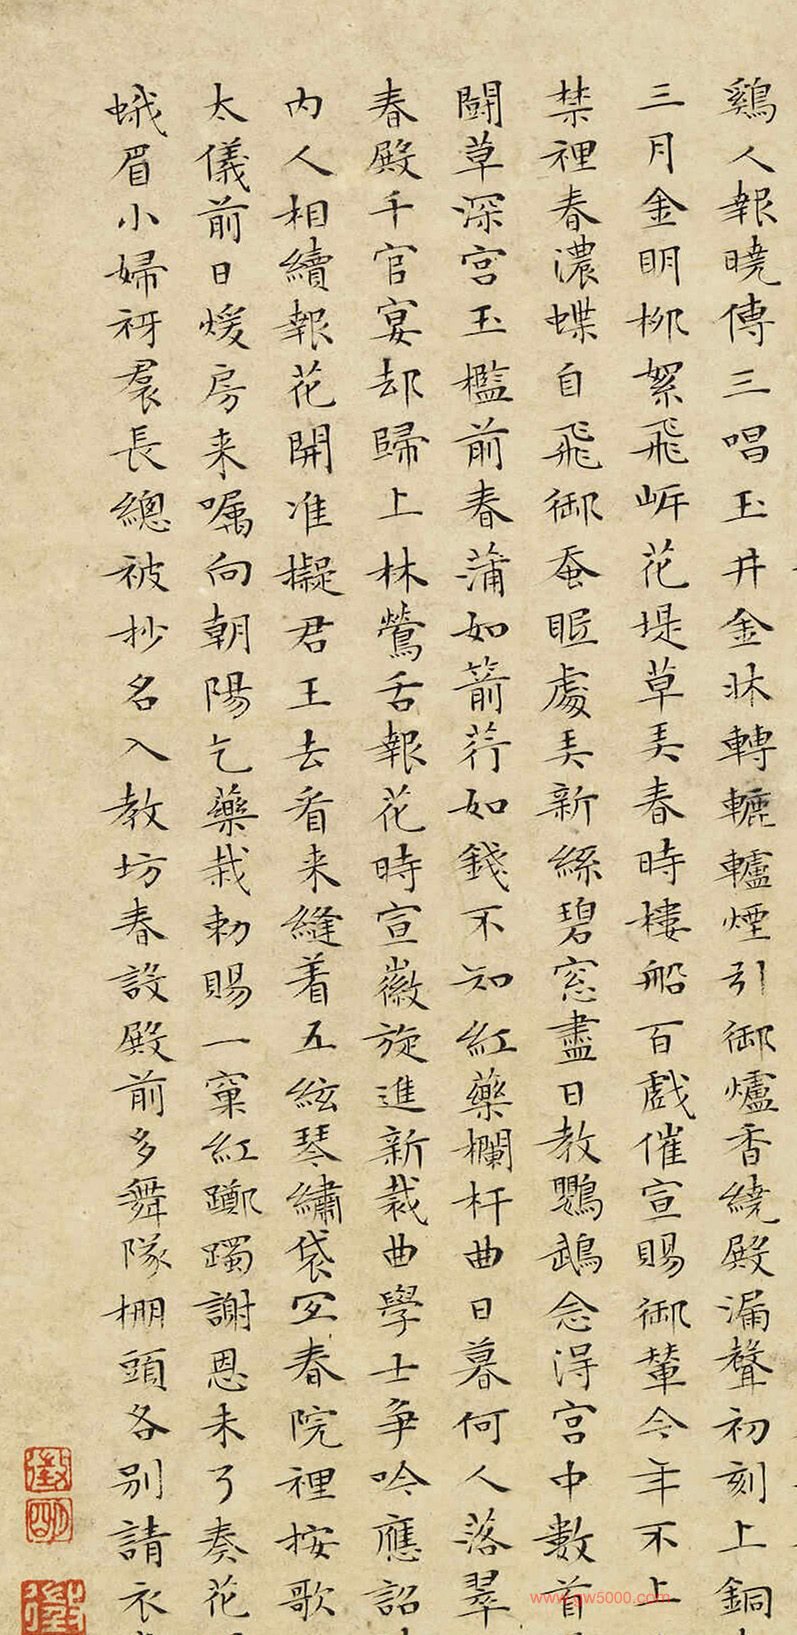 鷄人報曉傳三唱玉井金牀轉轆轤煙引御爐香繞殿漏聲初刻上銅
三月金明柳絮飛岍花堤草弄春時樓船百戲催宣賜御輦今年不上
禁裡春濃蝶自飛御蚕眠處弄新絲碧窓盡日教鸚鵡念得宮中數首
鬪草深宮玉檻前春蒲如箭荇如錢不知紅藥欄杆曲日暮何人落翠
春殿千官宴却歸上林鶯舌報花時宣徽旋進新裁曲學士爭吟應詔
內人相續報花開准擬君王去看来縫着五絃琴繡袋宜春院裡按歌
太儀前日煖房来嘱向朝陽乞藥栽勅賜一窠紅躑躅謝恩未了奏花
蛾眉小婦衩裠長總被抄名入教坊春設殿前多舞隊棚頭各別請衣
徵明
www.gw5000.com